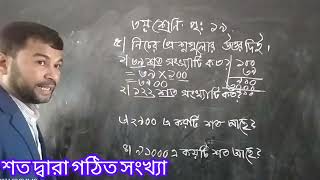 ৩য় শ্রেনি পৃ: ১৯
৫| নিচের প্রশ্নগুলোর উত্তর দিই।
১| ৩৯ শত সংখ্যাটি কত? ১০০
= ৩৯ × ১০০ ৩৯
= ৩৯০০ ৯০০
২| ১২২ শত সংখ্যাটি কত?
৩| ২৭০০ এ কয়টি শত আছে?
৪| ৩১০০০ এ কয়টি শত আছে?
শত দ্বারা গঠিত সংখ্যা